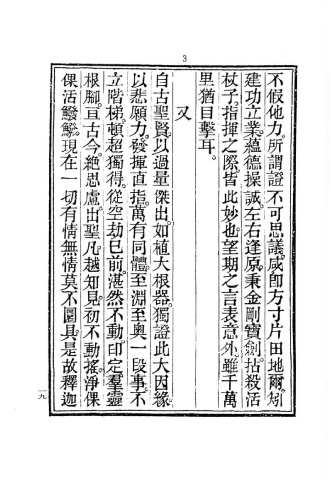 3
不假他力。所謂證不可思議。咸卽方寸片田地爾。矧
建功立業。蘊德操誠。左右逢原。秉金剛寶劍。拈殺活
杖子。指揮之際。皆此妙也。望期之言表意外。雖千萬
里猶目擊耳。
又
自古聖賢。以過量傑出。如植大根器。獨證此大因緣。
以悲願力。發揮直指。萬有同體。至淵至奧一段事。不
立階梯。頓超獨得。從空劫已前。湛然不動。印定羣靈
根脚。亘古今絶思慮。出聖凡越知見。初不動搖。淨倮
倮活鱍鱍。現在一切有情無情。莫不圓具。是故釋迦
一九